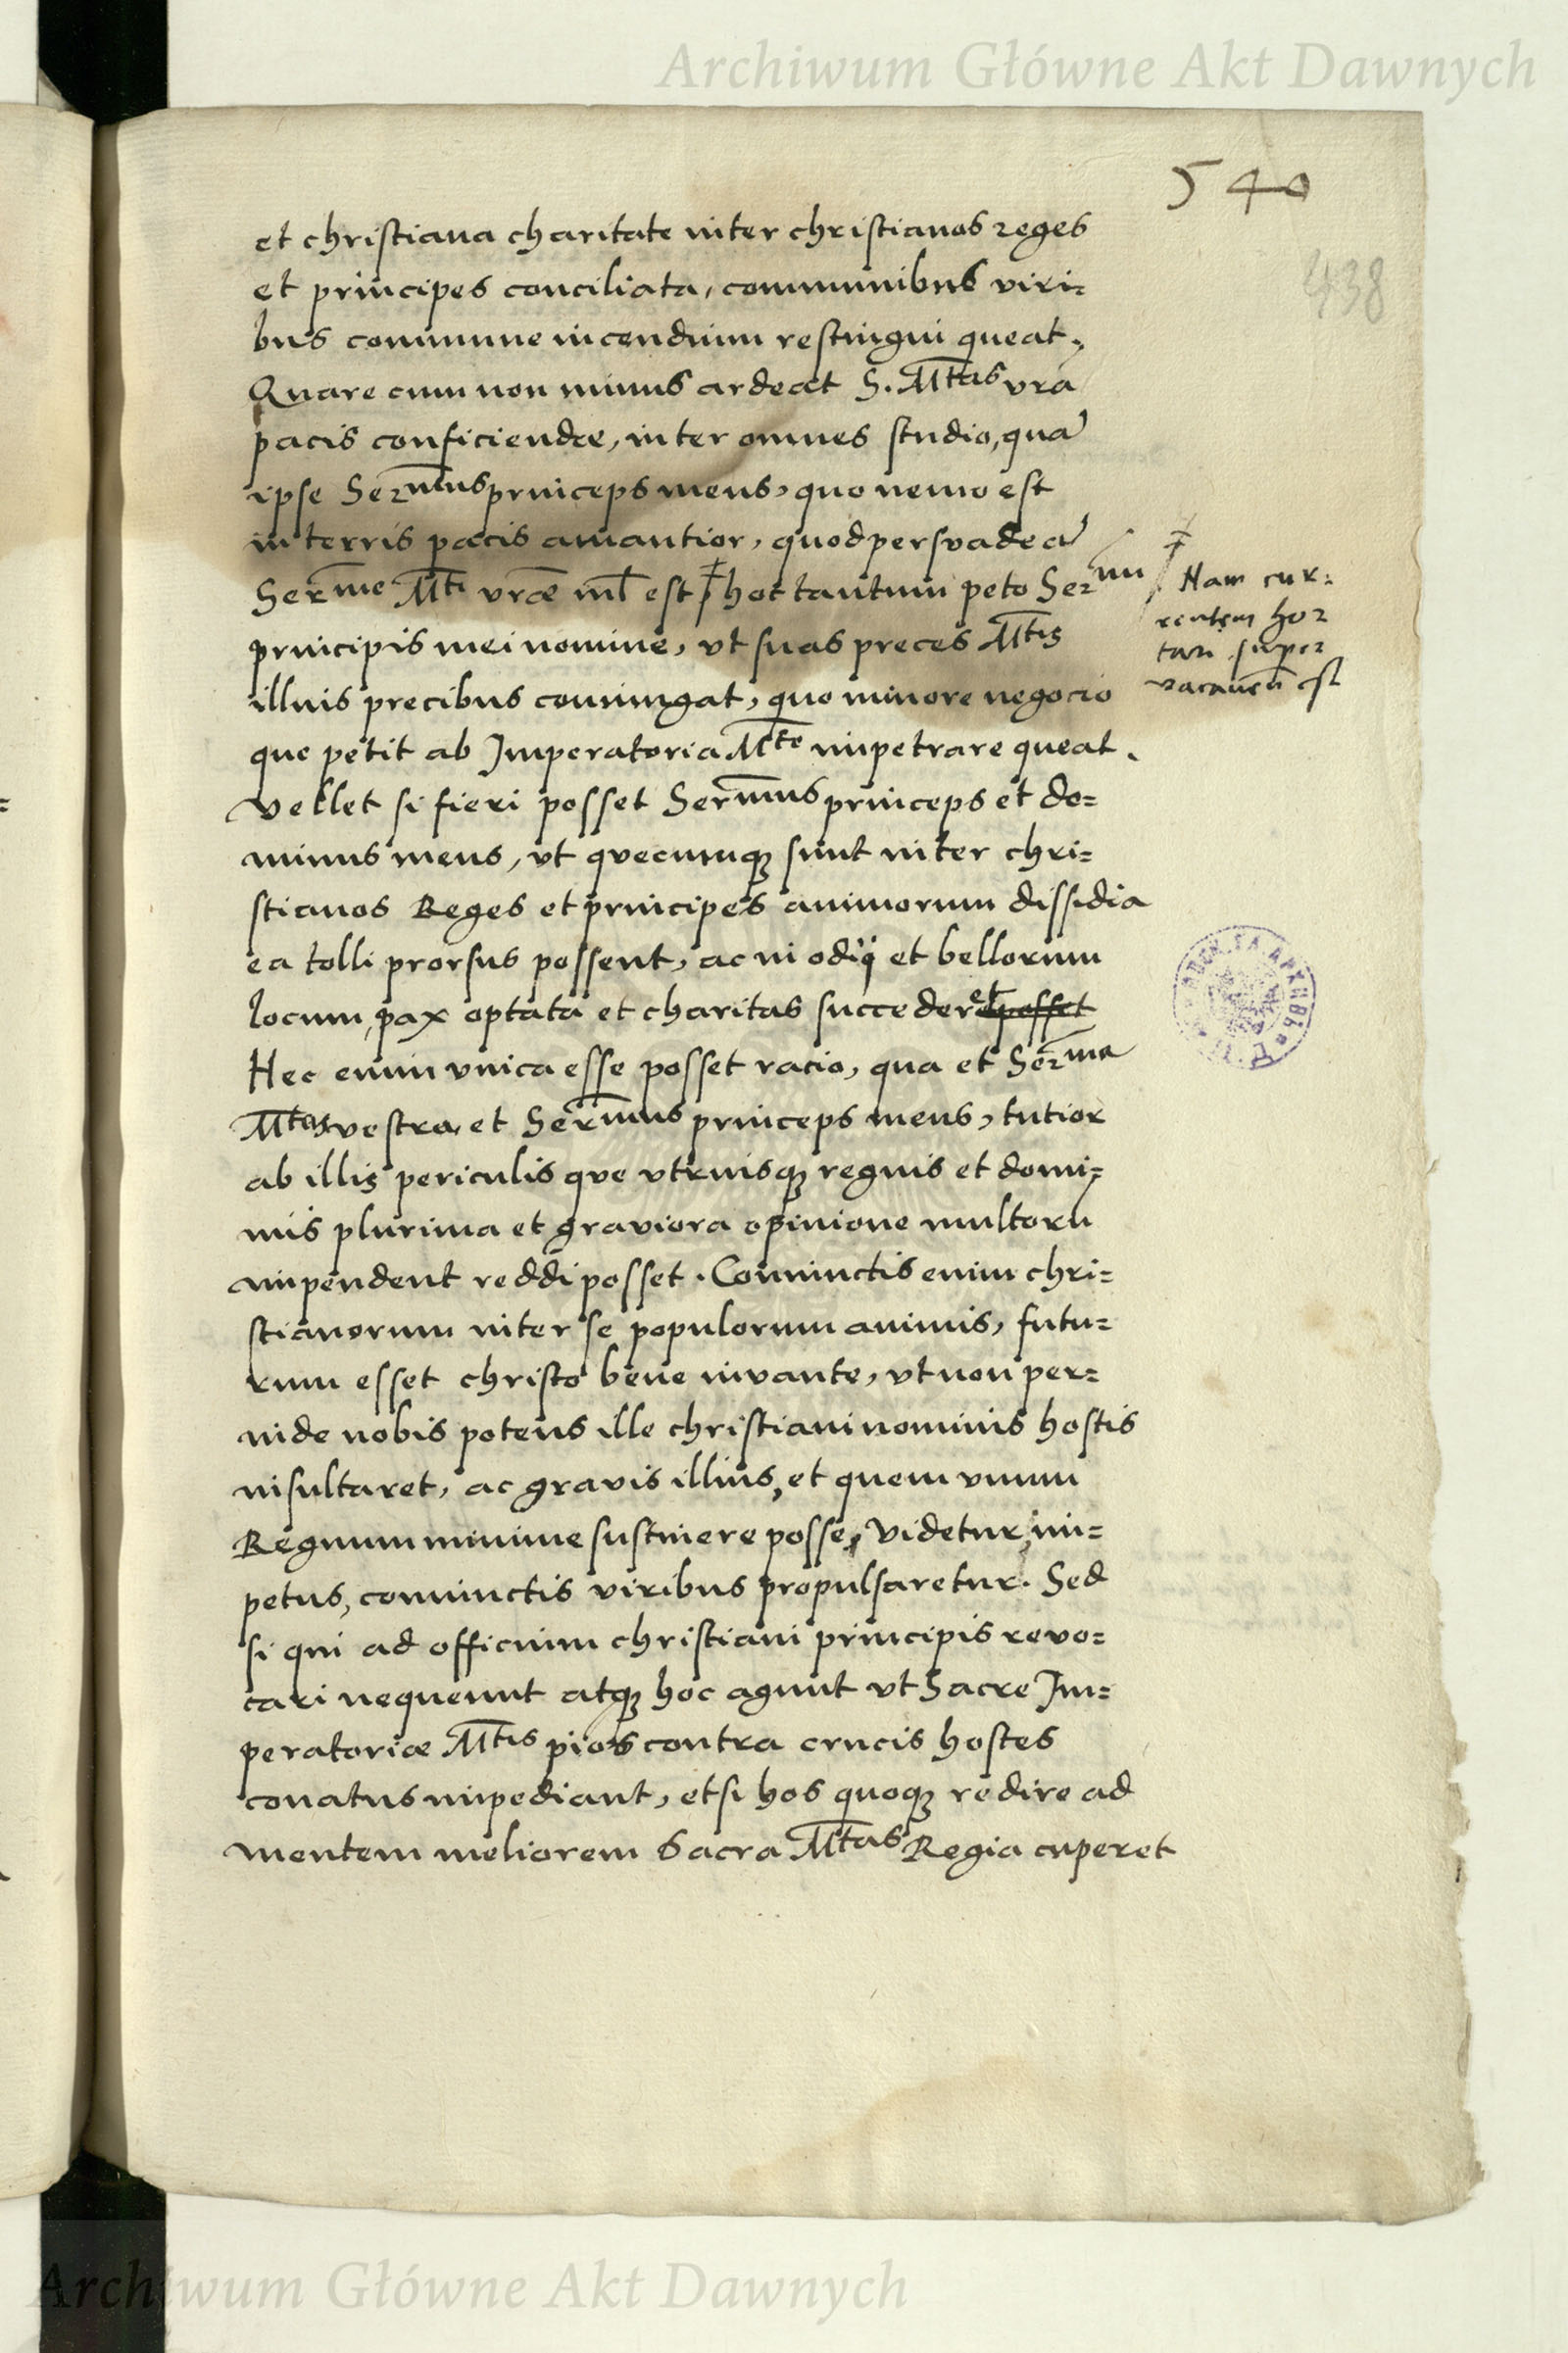 Archiwum Główne Akt Dawnych
540
438
et christiana charitate inter christianos reges
et principes conciliata, communibus viri=
bus commune incendium restingui queat,
Quare cum non minus ardeat S. Mtas vra
pacis conficiendæ, inter omnes studio, qua
ipse Sermus princeps meus, quo nemo est
in terris pacis amantior, quod persvadea
Serme Mti vræ nil est ‡ hoc tantum peto Sermi
principis mei nomine, vt suas preces Mtis
illius precibus coniungat, quo minore negocio
que petit ab Imperatoria Mte impetrare queat.
Vellet si fieri posset Sermus princeps et do=
minus meus, vt qvecumq sunt inter chri=
stianos Reges et principes animorum dissidia
ea tolli prorsus possent, ac in odij et bellorum
locum, pax optata et charitas succederet posset
Hec enim vnica esse posset racio, qua et Serma
Mtas vestra, et Sermus princeps meus, tutior
ab illis periculis qve vtriusq regnis et domi=
niis plurima et graviora opinione multoru
impendent reddi posset. Coniunctis enim chri=
stianorum inter se populorum animis, futu=
rum esset christo bene iuvante, vt non per=
inde nobis potens ille christiani nominis hostis
insultaret, ac gravis illius, et quem vnum
Regnum minime sustinere posse, videtur, im=
petus, coniunctis viribus propulsaretur. Sed
si qui ad officium christiani principis revo=
cari nequeunt atq hoc agunt vt Sacre Im=
peratoriæ Mtis pios contra crucis hostes
conatus impediant, etsi hos quoq redire ad
mentem meliorem Sacra Mtas Regia cuperet
‡ Nam cur=
rentem hor
tari super
vacaneu est
Archiwum Główne Akt Dawnych